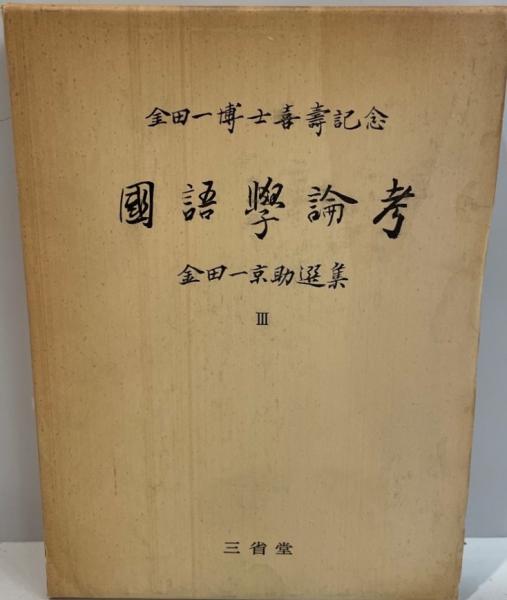 金田一博士喜壽記念
國語學論考
金田一京助選集
Ⅲ
三省堂